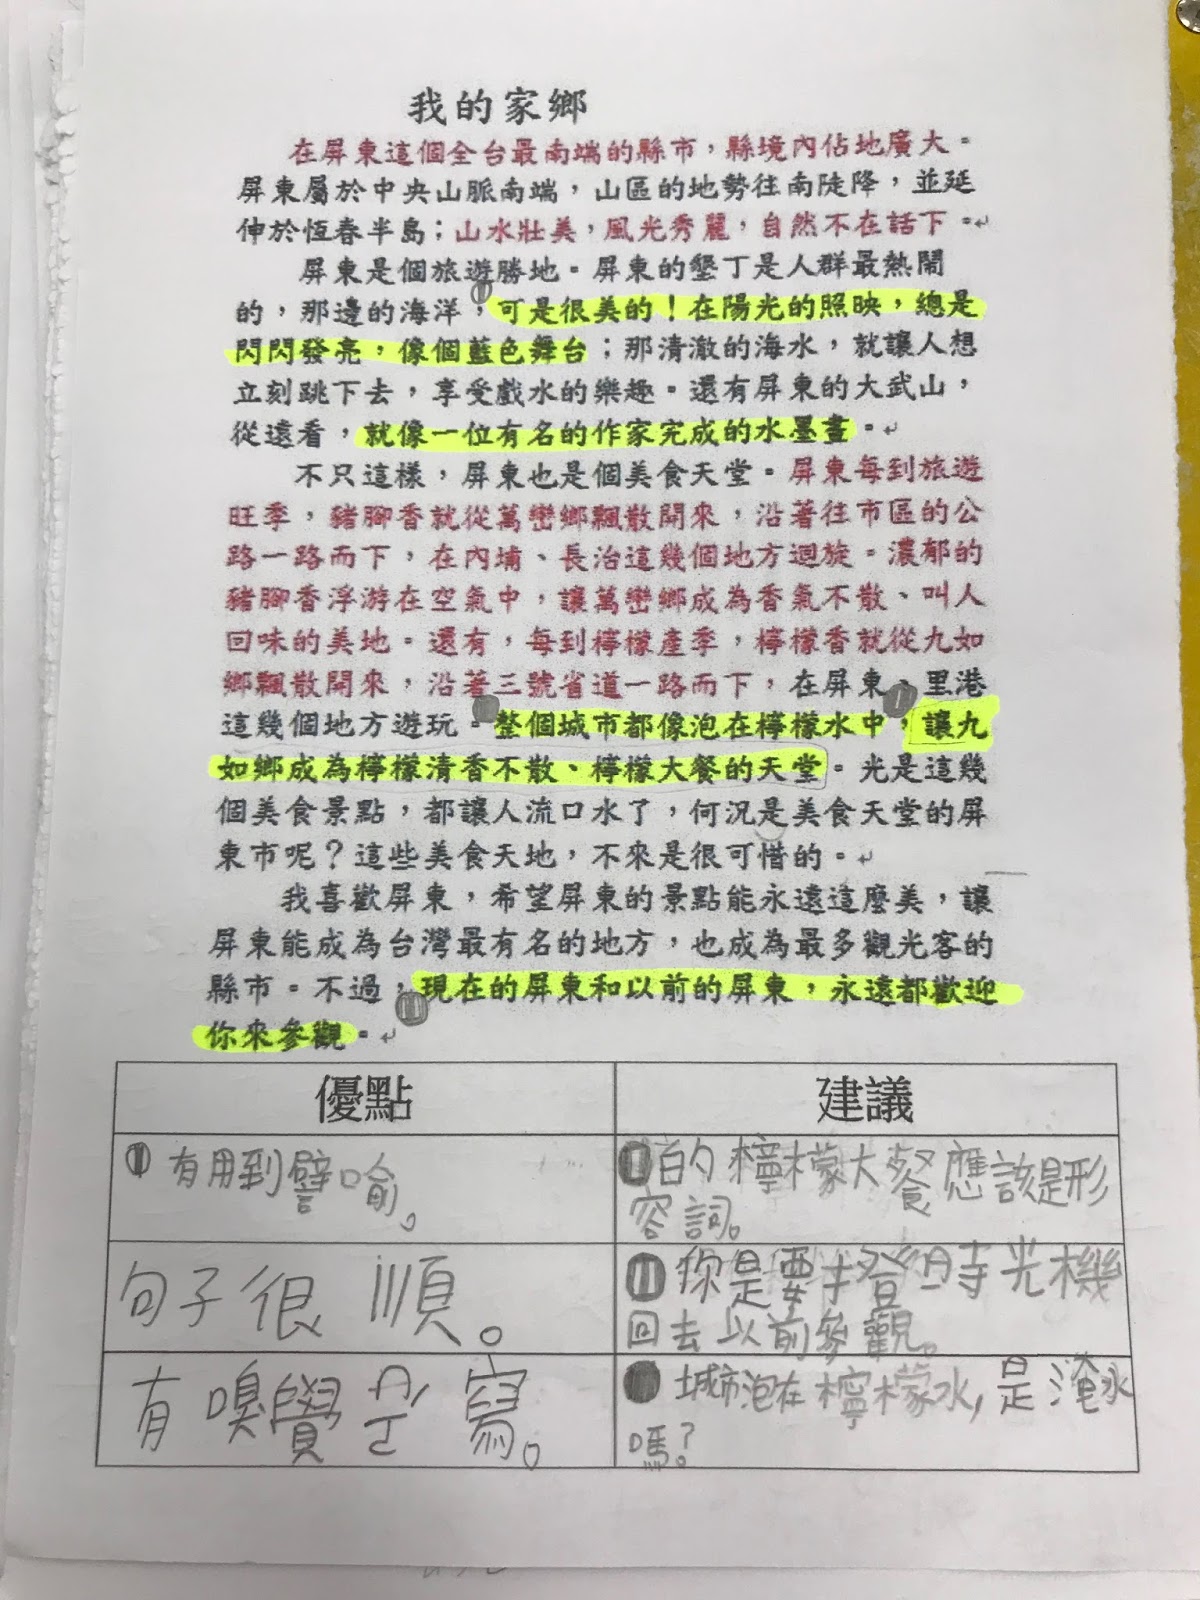 我的家鄉
在屏東這個全台最南端的縣市，縣境內佔地廣大。
屏東屬於中央山脈南端，山區的地勢往南陡降，並延
伸於恆春半島；山水壯美，風光秀麗，自然不在話下。
屏東是個旅遊勝地。屏東的墾丁是人群最熱鬧
的，那邊的海洋，可是很美的！在陽光的照映，總是
閃閃發亮，像個藍色舞台；那清澈的海水，就讓人想
立刻跳下去，享受戲水的樂趣。還有屏東的大武山，
從遠看，就像一位有名的作家完成的水墨畫。
不只這樣，屏東也是個美食天堂。屏東每到旅遊
旺季，豬腳香就從萬巒鄉飄散開來，沿著往市區的公
路一路而下，在內埔、長治這幾個地方迴旋。濃郁的
豬腳香浮游在空氣中，讓萬巒鄉成為香氣不散、叫人
回味的美地。還有，每到檸檬產季，檸檬香就從九如
鄉飄散開來，沿著三號省道一路而下，在屏東、里港
這幾個地方遊玩。整個城市都像泡在檸檬水中，讓九
如鄉成為檸檬清香不散、檸檬大餐的天堂。光是這幾
個美食景點，都讓人流口水了，何況是美食天堂的屏
東市呢？這些美食天地，不來是很可惜的。
我喜歡屏東，希望屏東的景點能永遠這麼美，讓
屏東能成為台灣最有名的地方，也成為最多觀光客的
縣市。不過，現在的屏東和以前的屏東，永遠都歡迎
你來參觀。
優點 建議
有用到譬喻。
的檸檬大餐應該是形
容詞。
句子很順。
你是要搭時光機
回去以前參觀。
有嗅覺描寫。
城市泡在檸檬水，是淹水
嗎？